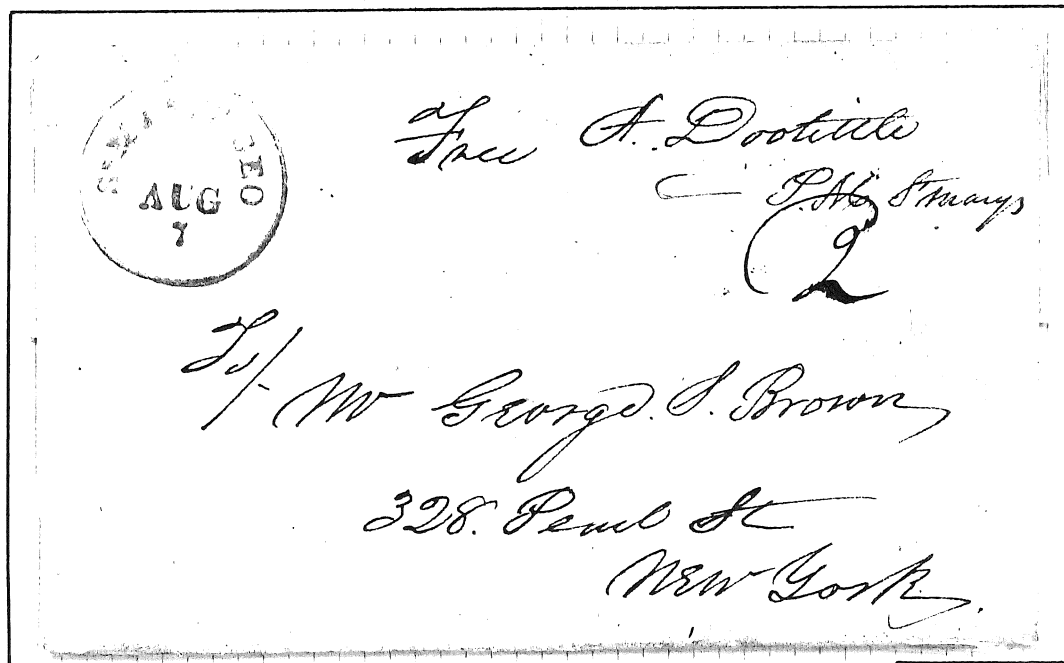 GEO
AUG
7
Free A. Doolittle
P.M. St marys
2
To/- Mr George. S. Brown
328. Pearl St
New York.